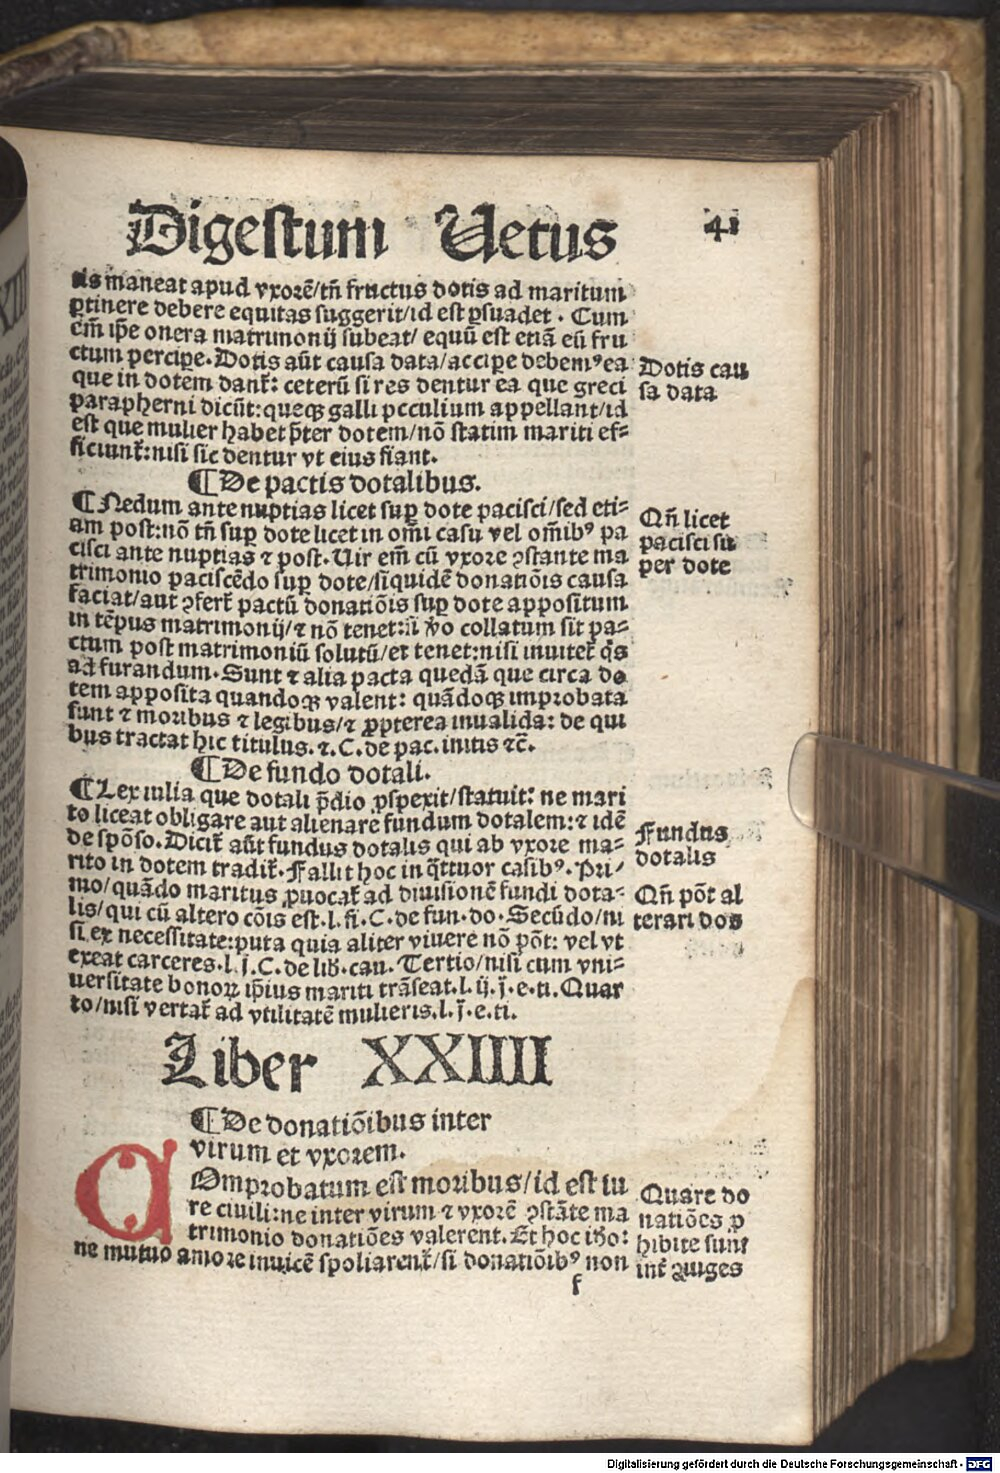 Digestum Uetus 41
tis maneat apud vxorē/tñ fructus dotis ad maritum
ꝑtinere debere equitas suggerit/id est ꝑsuadet. Cum
em̄ ip̄e onera matrimonij subeat/ equū est etiā eū fru
ctum percipe. Dotis aūt causa data/accipe debem⁹ ea
que in dotem dant̄: ceterū si res dentur ea que greci
parapherni dicūt: queqꝫ galli peculium appellant/id
est que mulier habet p̄ter dotem/nō statim mariti ef⸗
ficiunt̄: nisi sic dentur vt eius fiant.
Dotis cau
sa data
¶ De pactis dotalibus.
¶ Nedum ante nuptias licet suꝑ dote pacisci/sed eti⸗
am post: nō tñ suꝑ dote licet in om̄i casu vel om̄ib⁹ pa
cisci ante nuptias ⁊ post. Uir em̄ cū vxore ꝯstante ma
trimonio paciscēdo suꝑ dote/siquidē donatiōis causa
faciat/aut ꝯfert̄ pactū donatiōis suꝑ dote appositum
in tēpus matrimonij/⁊ nō tenet: si v̄o collatum sit pa⸗
ctum post matrimoniū solutū/et tenet: nisi inuitet̄ q̄s
ad furandum. Sunt ⁊ alia pacta quedā que circa do
tem apposita quandoqꝫ valent: quādoqꝫ improbata
sunt ⁊ moribus ⁊ legibus/⁊ ꝓpterea inualida: de qui
bus tractat hic titulus. ⁊. C. de pac. initis ⁊c̄.
Qñ licet
pacisci su
per dote
¶ De fundo dotali.
¶ Lex iulia que dotali p̄dio ꝓspexit/statuit: ne mari
to liceat obligare aut alienare fundum dotalem: ⁊ idē
de spōso. Dicit̄ aūt fundus dotalis qui ab vxore ma⸗
rito in dotem tradit̄. Fallit hoc in q̄ttuor casib⁹. Pri⸗
mo/quādo maritus ꝓuocat̄ ad diuisionē fundi dota⸗
lis/qui cū altero cōis est. l. fi. C. de fun. do. Secūdo/ni
si ex necessitate: puta quia aliter viuere nō pōt: vel vt
exeat carceres. l. j. C. de lib̄. cau. Tertio/nisi cum vni⸗
uersitate bonoꝝ ip̄ius mariti trāseat. l. ij. j. e. ti. Quar
to/nisi vertat̄ ad vtilitatē mulieris. l. j. e. ti.
Fundus
dotalis
Qñ pōt al
terari dos
Liber XXIIII
¶ De donatiōibus inter
virum et vxorem.
COmprobatum est moribus/id est iu
re ciuili: ne inter virum ⁊ vxorē ꝯstāte ma
trimonio donatiōes valerent. Et hoc iō:
ne mutuo amore inuicē spoliarent̄/si donatiōib⁹ non
Quare do
natiōes ꝓ
hibite sunt
int̄ ꝯiuges
f
Digitalisierung gefördert durch die Deutsche Forschungsgemeinschaft - DFG